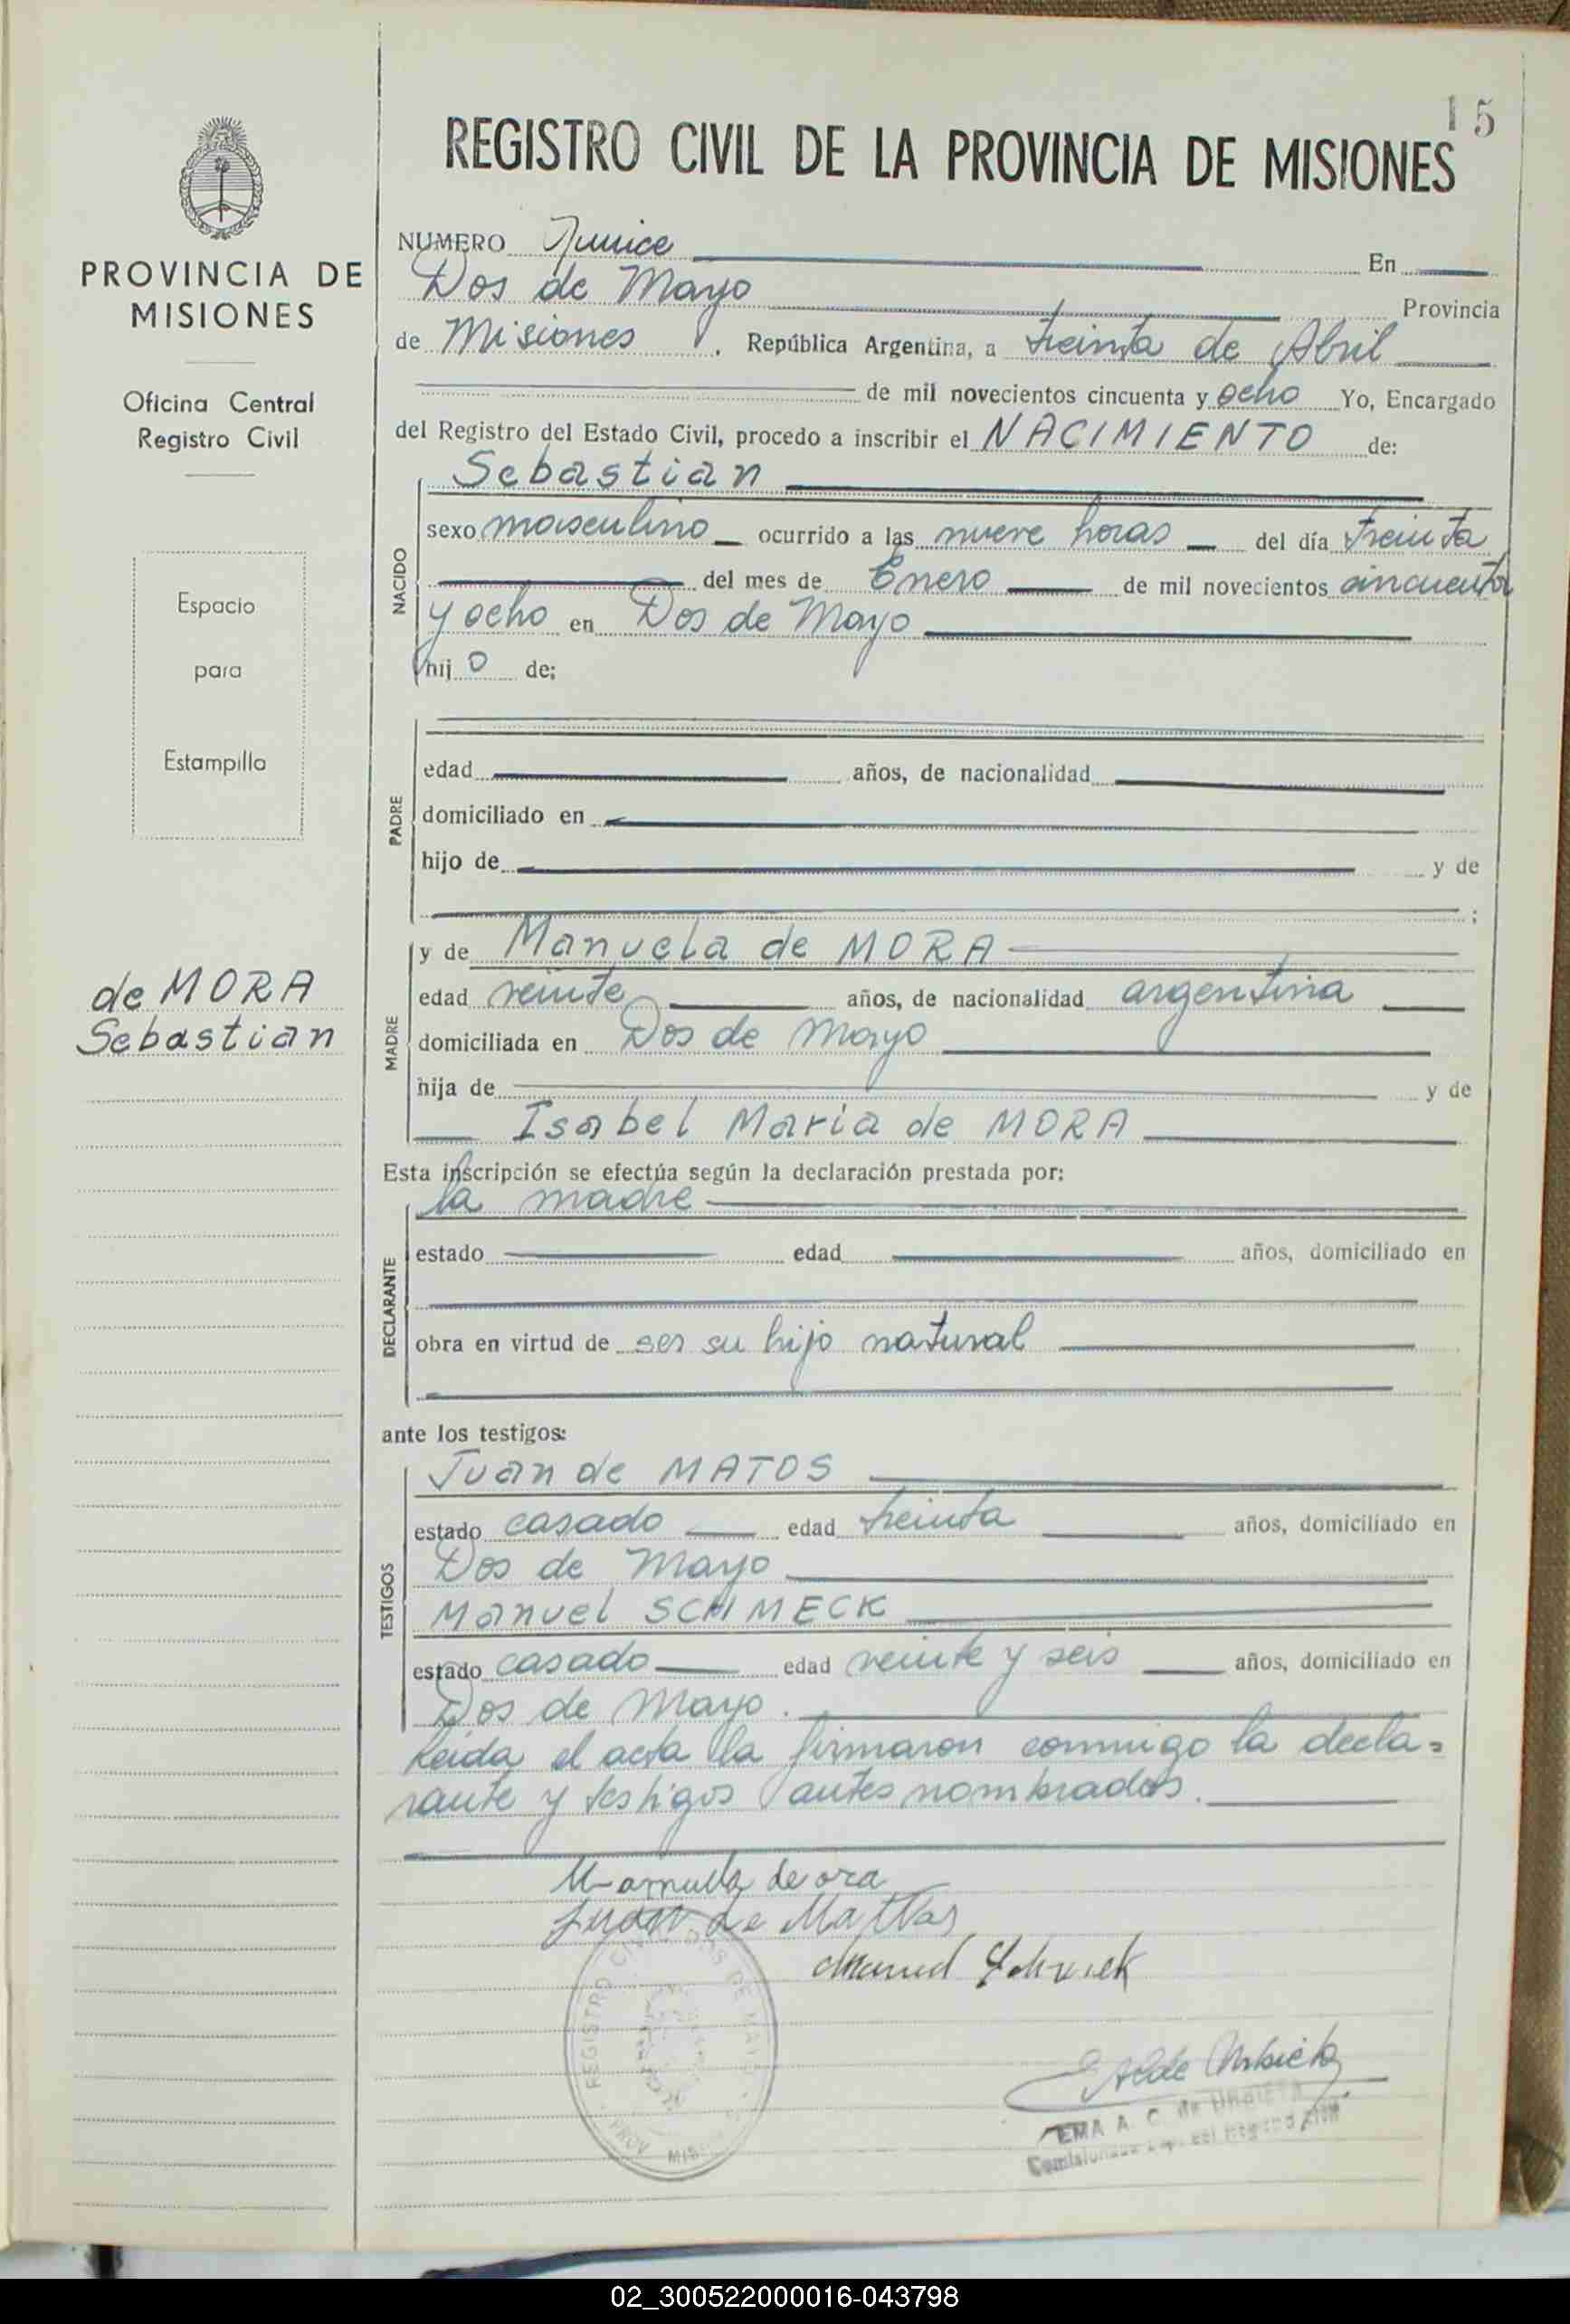 15
REGISTRO CIVIL DE LA PROVINCIA DE MISIONES
PROVINCIA DE
MISIONES
Oficina Central
Registro Civil
Espacio
para
Estampilla
de MORA
Sebastian
NUMERO Quince En
Dos de Mayo Provincia
de Misiones, República Argentina, a treinta de Abril
de mil novecientos cincuenta y ocho Yo, Encargado
del Registro del Estado Civil, procedo a inscribir el NACIMIENTO de:
NACIDO
Sebastian
sexo masculino ocurrido a las nueve horas del día treinta
del mes de Enero de mil novecientos cincuenta
y ocho en Dos de Mayo
hijo de;
PADRE
edad años, de nacionalidad
domiciliado en
hijo de y de
;
MADRE
y de Manuela de MORA
edad veinte años, de nacionalidad argentina
domiciliada en Dos de Mayo
hija de y de
Isabel Maria de MORA
Esta inscripción se efectúa según la declaración prestada por:
DECLARANTE
la madre
estado edad años, domiciliado en
obra en virtud de ser su hijo natural
ante los testigos:
TESTIGOS
Juan de MATOS
estado casado edad treinta años, domiciliado en
Dos de Mayo
Manuel SCHMECK
estado casado edad veinte y seis años, domiciliado en
Dos de Mayo.
Leida el acta la firmaron conmigo la decla=
rante y testigos antes nombrados.
Manuela de ora
Juan de Mattos
Manuel
REGISTRO CIVIL DOS DE MAYO
PROV. MISIONES
EMA A. C. de URBIETA
Registro Civil
02_300522000016-043798